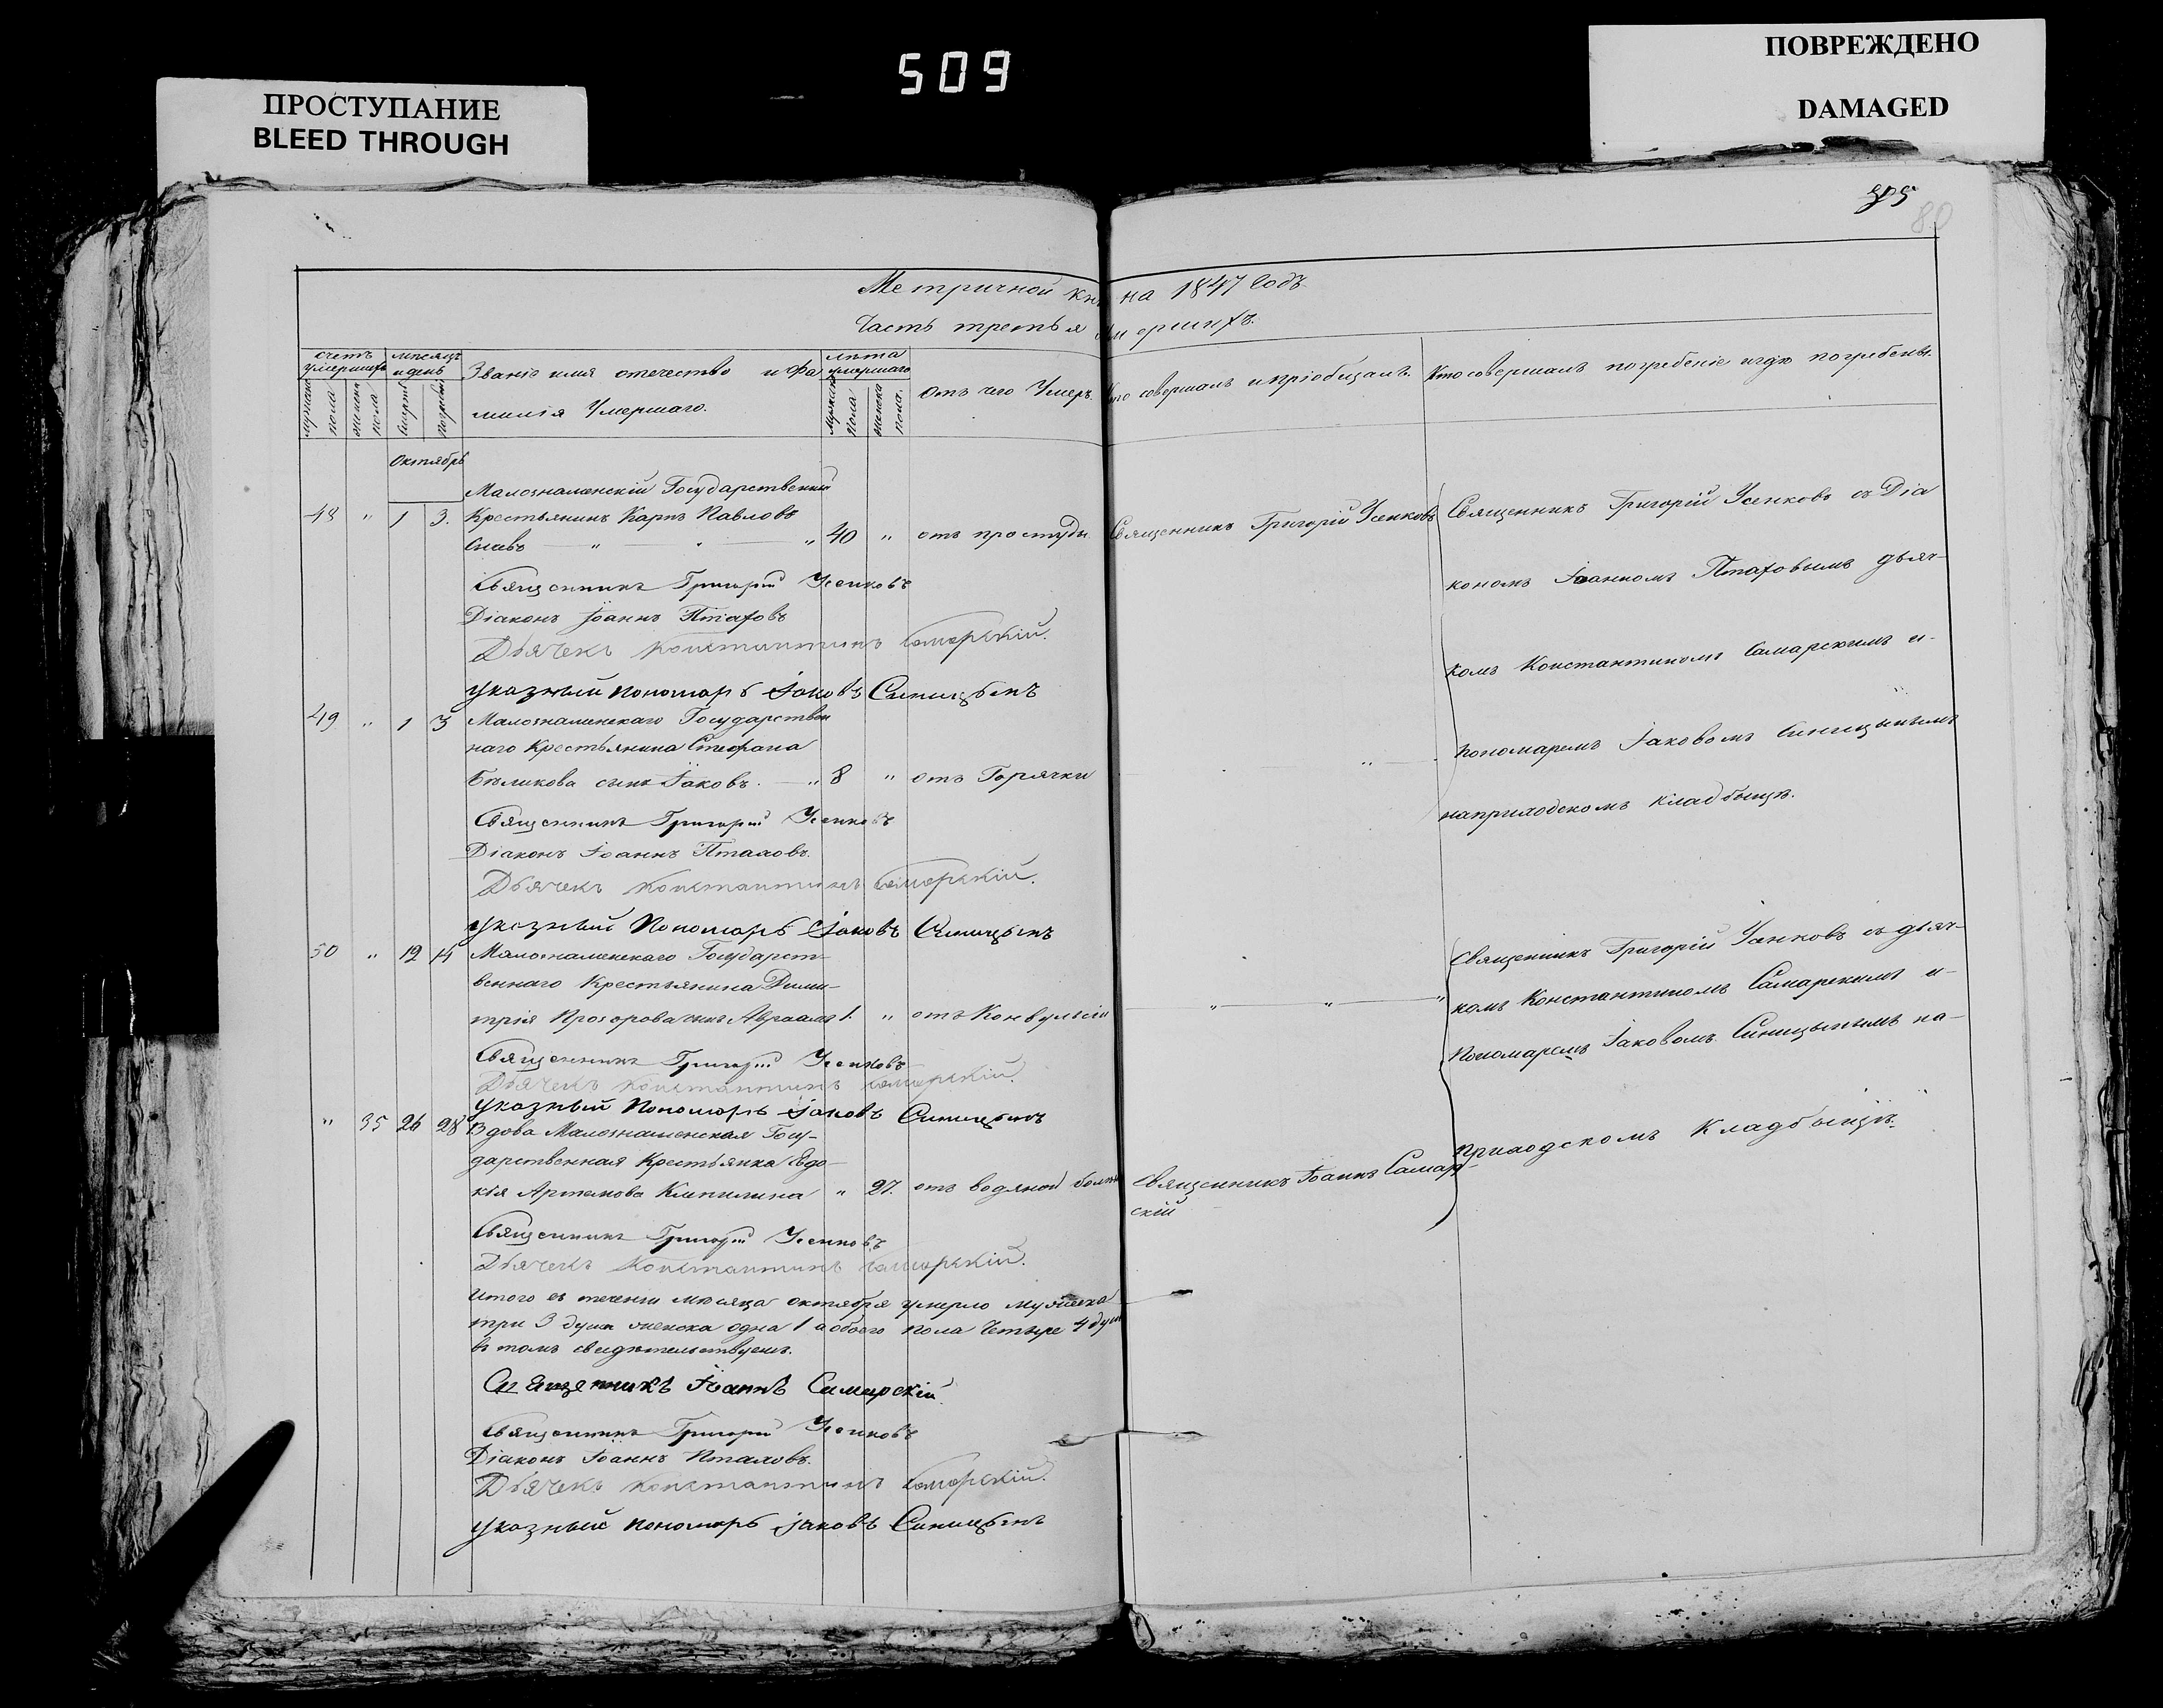 ПРОСТУПАНИЕ
BLEED THROUGH
509
ПОВРЕЖДЕНО
DAMAGED
305
80
Метричной кни на 1847 Годъ
Часть третья умершихъ.
счетъ умершихъ
мужска пола
женска пола
месяцъ и день
смерти
погребен
Званіе имя отечество и фа
милія Умершаго.
лѣта умершаго
мужска пола
женска пола.
Отъ чего Умеръ.
Кто совершалъ и пріобщалъ.
Кто совершалъ погребеніе и гдѣ погребены.
Октябрь
Малознаменскій Государственный
48 " 1 3. Крестьянинъ Карпъ Павловъ
" 40 " отъ простуды Священникъ Григорій Усенковъ
Священникъ Григорій Усенковъ съ Діа
кономъ Іоанномъ Птаховымъ дьяч-
комъ Константиномъ Самарскимъ и-
пономаремъ Іаковомъ Синицынымъ
наприходскомъ кладбыщѣ.
Священникъ Григорій Усенковъ
Діаконъ Іоаннъ Птаховъ
Дьячекъ Константинъ Самарскій.
указный пономарь Іаковъ Синицынъ
49 " 1 3 Малознаменскаго Государствен
наго Крестьянина Стефана
Бѣликова сынъ Іаковъ. " 8 " отъ Горячки
Священникъ Григорій Усенковъ
Діаконъ Іоаннъ Птаховъ.
Дьячекъ Константинъ Самарскій.
указный Пономарь Іаковъ Синицынъ
50 " 12 14 Малознаменскаго Государст-
веннаго Крестьянина Дими-
трія Прозорова сынъ Авраамъ 1. " отъ Конвульсіи " " "
Священникъ Григорій Усенковъ съ дьяч-
комъ Константиномъ Самарскимъ и-
Пономаремъ Іаковомъ Синицынымъ на-
приходскомъ Кладбыщѣ.
Священникъ Григорій Усенковъ
Дьячекъ Константинъ Самарскій.
указный Пономарь Іаковъ Синицынъ
" 35 26 28 Вдова Малознаменская Госу-
дарственная Крестьянка Евдо-
кія Артемова " 27. отъ водяной Священникъ Іоаннъ Самар-
скій
Священникъ Григорій Усенковъ
Дьячекъ Константинъ Самарскій.
Итого въ теченіи мѣсяца октября умерло мужеска
три 3 души женска одна 1 а обоего пола Четыре 4 душ
въ томъ свидѣтельствуемъ.
Священникъ Іоаннъ Самарскій
Священникъ Григорій Усенковъ
Діаконъ Іоаннъ Птаховъ.
Дьячекъ Константинъ Самарскій.
указный пономарь Іаковъ Синицынъ